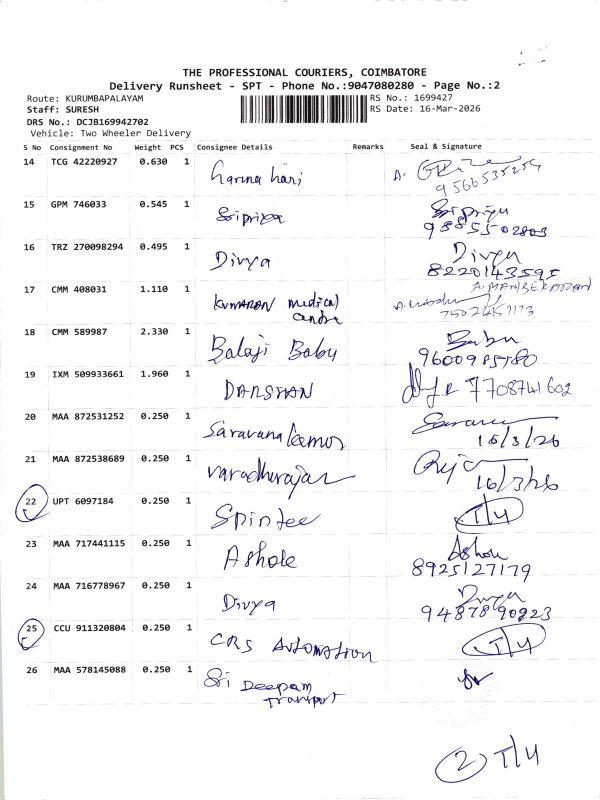 THE PROFESSIONAL COURIERS, COIMBATORE
Delivery Runsheet - SPT - Phone No.:9047080280 - Page No.:2
Route: KURUMBAPALAYAM
Staff: SURESH
DRS No.: DCJB169942702
Vehicle: Two Wheeler Delivery
RS No.: 1699427
RS Date: 16-Mar-2026
S No Consignment No Weight PCS Consignee Details Remarks Seal & Signature
14 TCG 42220927 0.630 1 hari A.
15 GPM 746033 0.545 1 Sripriya Sripriya
16 TRZ 270098294 0.495 1 Divya Divya
8220143595
17 CMM 408031 1.110 1 KUMARAN medical
centre
18 CMM 589987 2.330 1 Balaji Babu Babu
9600985780
19 IXM 509933661 1.960 1 DARSHAN 7708741602
20 MAA 872531252 0.250 1 Saravana
16/3/26
21 MAA 872538689 0.250 1 varadhurajan
16/3/26
22 UPT 6097184 0.250 1 Spintee T/4
23 MAA 717441115 0.250 1 Ashok Ashok
8925127179
24 MAA 716778967 0.250 1 Divya Divya
9487890923
25 CCU 911320804 0.250 1 CRS Automation T/4
26 MAA 578145088 0.250 1 Sri Deepam
Transport
2 T/4